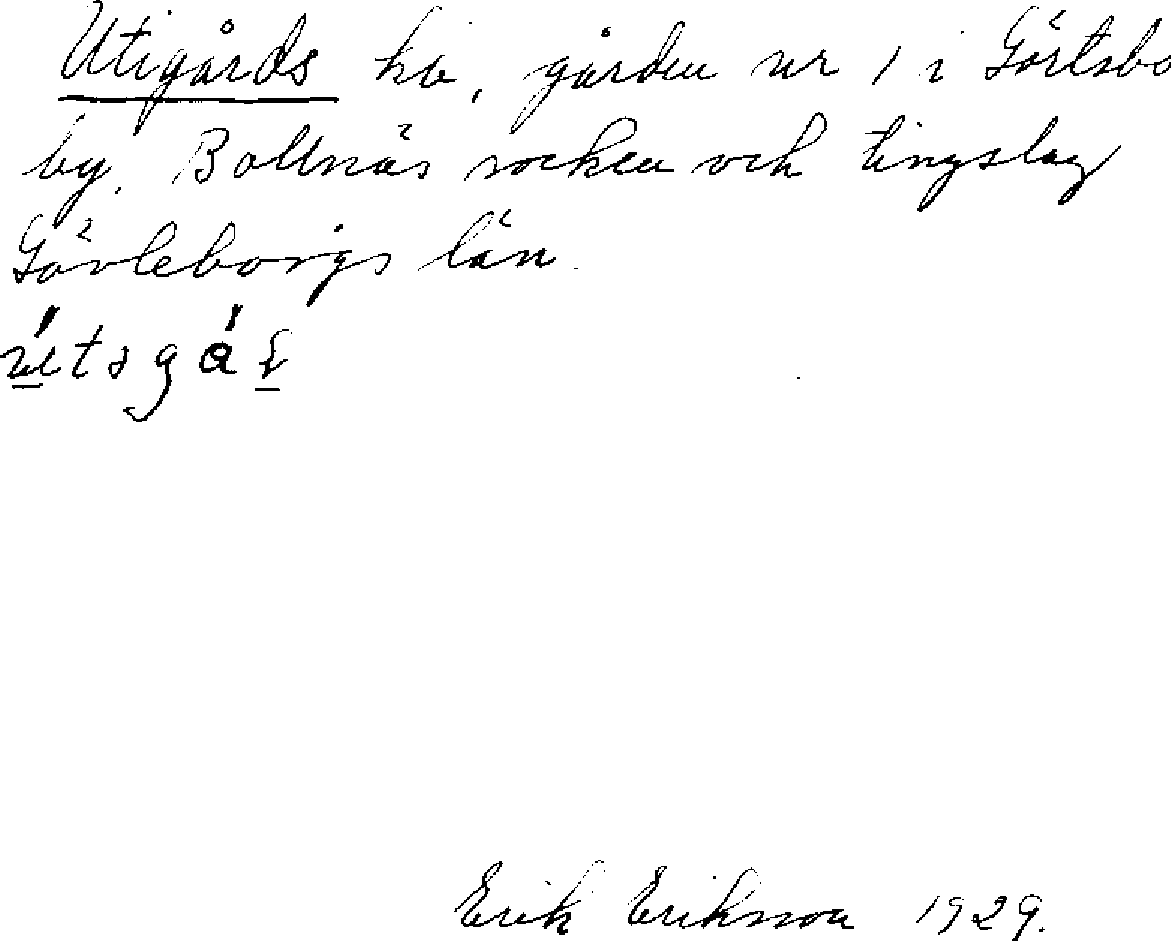 Utigårds hb, gården nr 1 i Görtsbo
by. Bollnäs socken och tingslag
Gävleborgs län.
Erik Eriksson 1929.